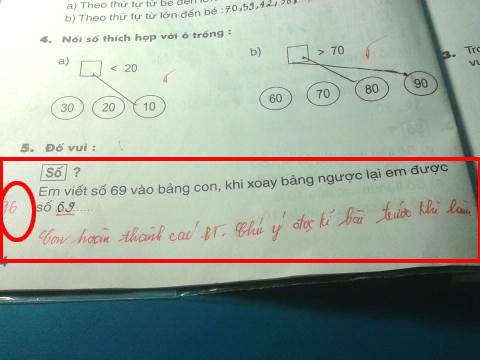 a) Theo thứ tự từ bé đến lớn
b) Theo thứ tự từ lớn đến bé : 70, 59, 42,
4. Nối số thích hợp với ô trống :
a) < 20
b) > 70
30 20 10
60 70 80 90
3. Tr
5. Đố vui :
Số ?
Em viết số 69 vào bảng con, khi xoay bảng ngược lại em được
số 69.....
Con hoàn thành các BT. Chú ý đọc kĩ bài trước khi làm